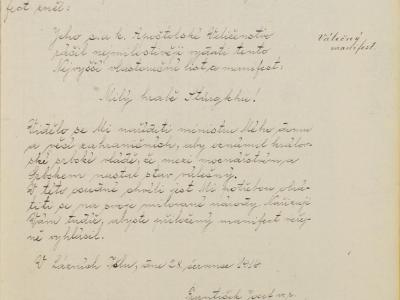 fest zněl:
Jeho c. a k. Apoštolské Veličenstvo
ráčil nejmilostivěji vydati tento
Nejvyšší vlastnoruční list a manifest:
Válečný
manifest.
"Milý hrabě Stürgkhu!
Vidělo se Mi naříditi ministru Mého domu
a věcí zahraničních, aby oznámil králov-
ské srbské vládě, že mezi mocnářstvím a
Srbskem nastal stav válečný.
V této osudné chvíli jest Mi potřebou obrá-
titi se na svoje milované národy. Nařizuji
Vám tudíž, abyste přiložený manifest veřej-
ně vyhlásil.
V Lázních Išlu, dne 28. července 1914
František Josef v. r.